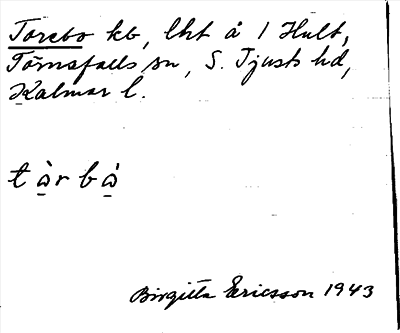 Torebo kb, lht å 1 Hult,
Törnsfalls sn, S. Tjusts hd,
Kalmar l.
tὰrbὰ
Birgitta Ericsson 1943